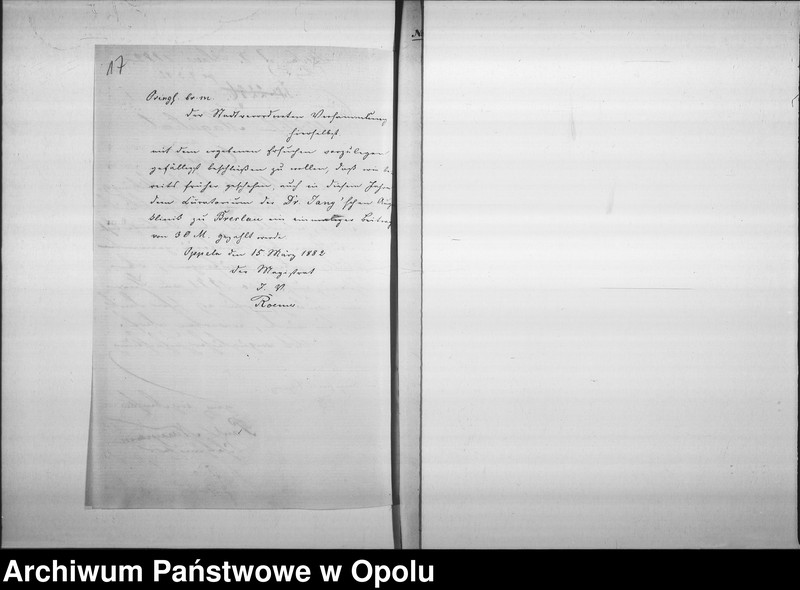 17
br. m.
der Stadtverordneten Versammlung
hierselbst
mit dem ergebenen Ersuchen vorzulegen
gefälligst beschließen zu wollen, daß wie be
reits früher geschehen, auch in diesem Jahre
dem Curatorium der Dr. Jany'schen Aug
klinik zu Breslau ein einmaliger Beitrag
von 30 M. gezahlt werde
Oppeln den 15 März 1882
Der Magistrat
J. V.
Archiwum Państwowe w Opolu